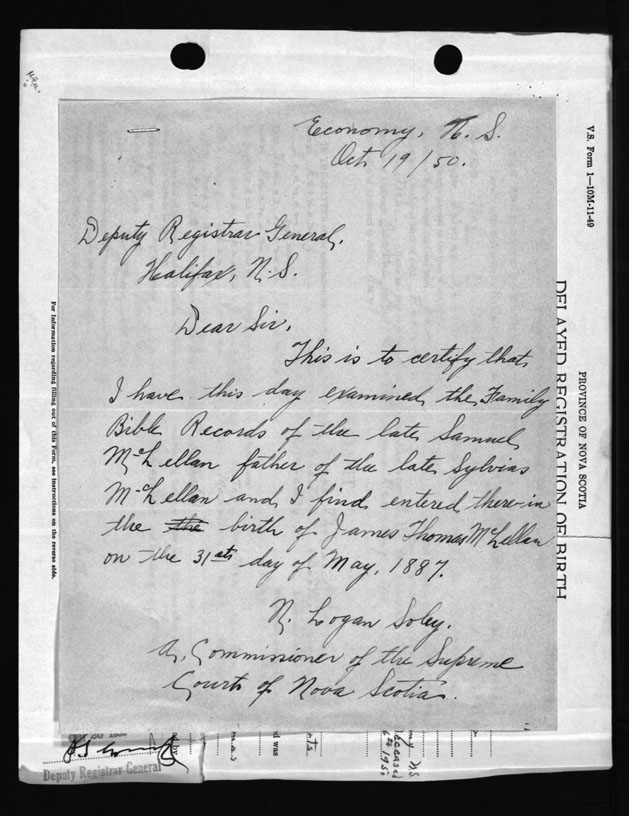 Economy, N. S.
Oct 19/50.
Deputy Registrar General,
Halifax, N.S.
Dear Sir,
This is to certify that
I have this day examined the Family
Bible Records of the late Samuel
McLellan father of the late Sylvias
McLellan and I find entered there-in
the the birth of James Thomas McLellan
on the 31st day of May, 1887.
N. Logan Soley.
A. Commissioner of the Supreme
Court of Nova Scotia.
V.S. Form 1—10M-11-49
PROVINCE OF NOVA SCOTIA
DELAYED REGISTRATION OF BIRTH
For Information regarding filling out of this Form, see Instructions on the reverse side.
Deputy Registrar General
d was
my N.S.
deceased